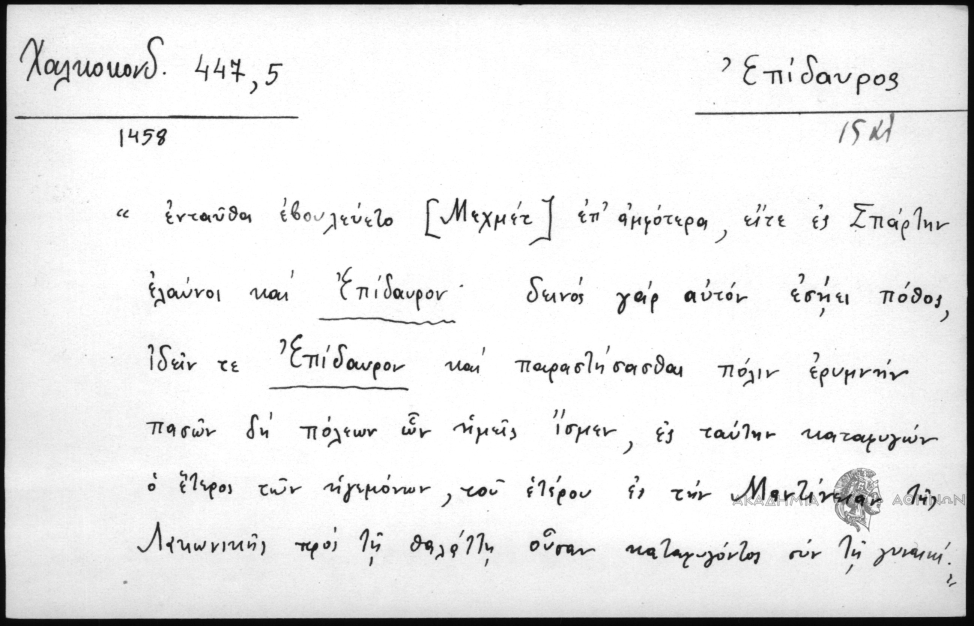 Χαλκοκονδ. 447,5
Ἐπίδαυρος
1458
“ ἐνταῦθα ἐβουλεύετο [Μεχμέτ] ἐπ' ἀμφότερα, εἴτε ἐς Σπάρτην
ἐλαύνοι καί Ἐπίδαυρον· δεινός γάρ αὐτόν ἐσῄει πόθος,
ἰδεῖν τε Ἐπίδαυρον καί παραστήσασθαι πόλιν ἐρυμνήν
πασῶν δή πόλεων ὧν ἡμεῖς ἴσμεν, ἐς ταύτην καταφυγών
ὁ ἕτερος τῶν ἡγεμόνων, τοῦ ἑτέρου ἐς τήν Μαντίνειαν τῆς
Λακωνικῆς πρός τῇ θαλάττῃ οὖσαν καταφυγόντος σύν τῇ γυναικί.”
ΑΚΑΔΗΜΙΑ ΑΘΗΝΩΝ